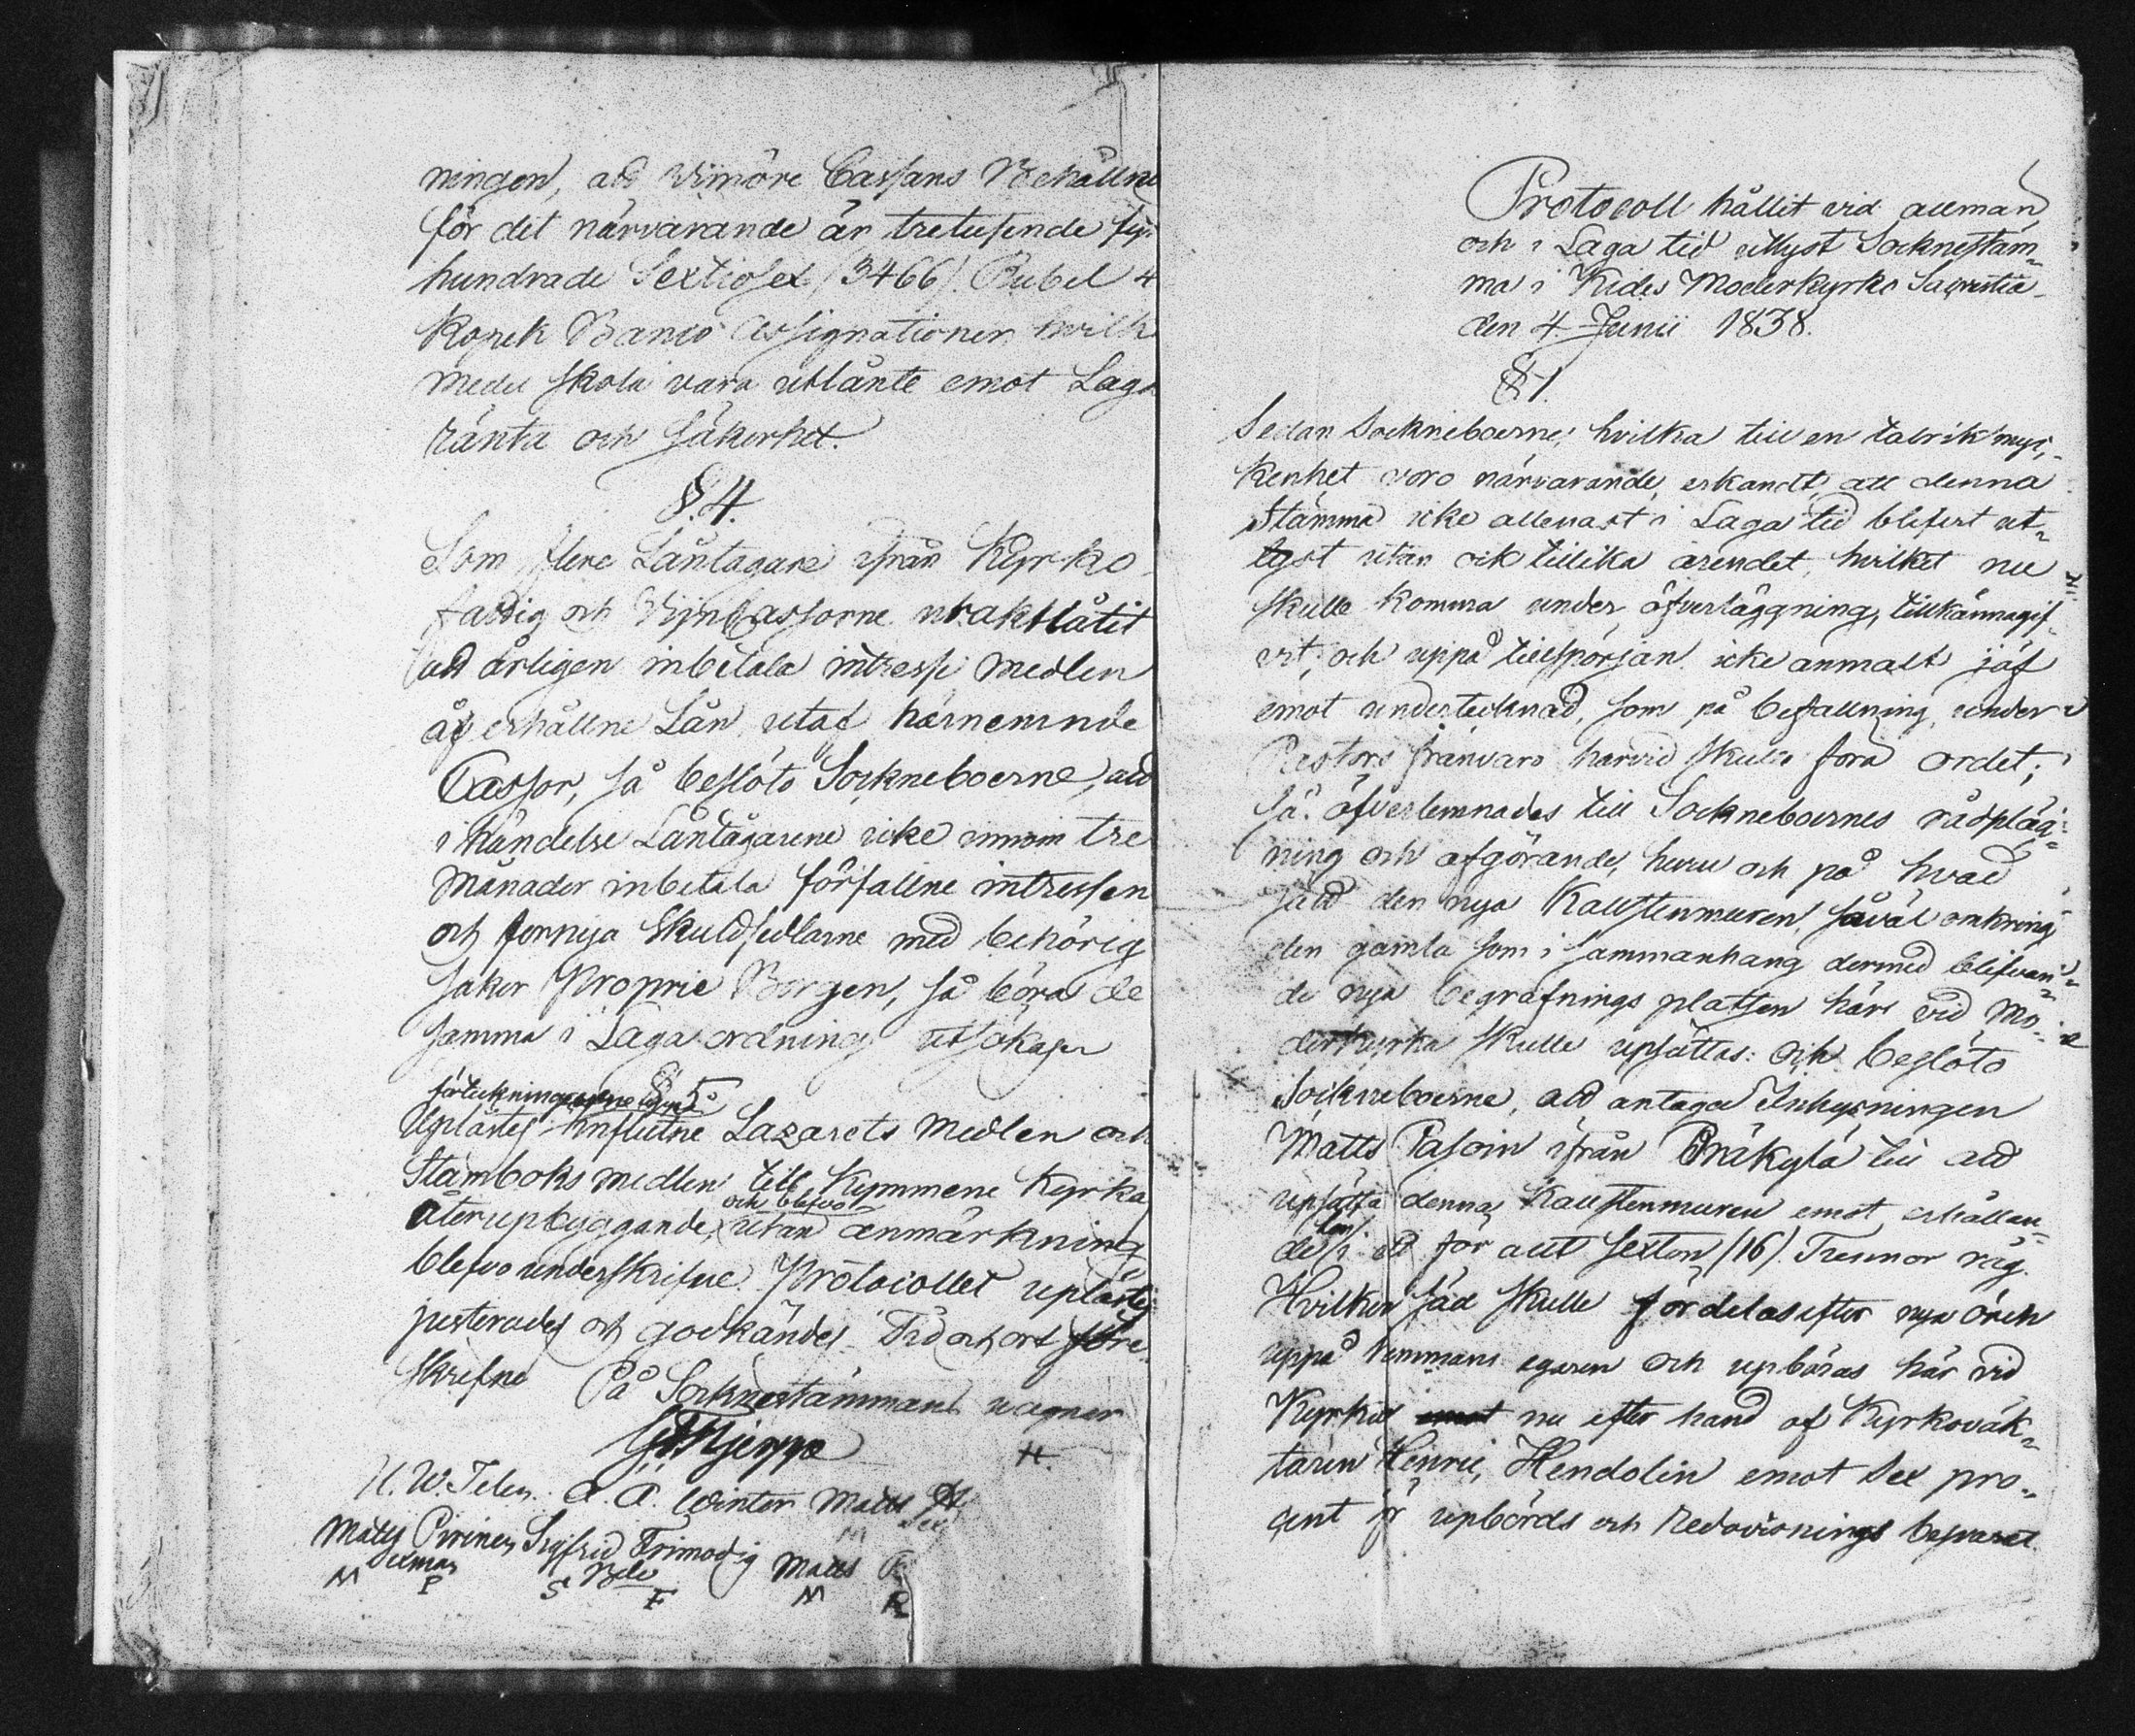 ningen, att Cassans Behållne
för det närvarande är tretusende fyr
hundrade Sextiosex (3466). Rubel 4
Kopek Banco Assignationer hvilk
medel skola vara utlånte emot Laga
ränta och säkerhet.
§. 4.
Som flere Låntagare ifrån Kyrko
fattig och Cassorne uraktlåtit
att årligen inbetala intresse medlen
af erhållne Lån utaf härnemnde
Cassor, så beslöto Sockneboerne, att
i händelse Låntagarene icke innom tre
Månader inbetala förfallne intressen
och förnya Skuldsedlarne med behörig
säker Proprie Borgen, så böra de
samma i Laga ordning utsökas
förteckningarne §. 5
Uplästes influtne Lazarets Medlen och
Stamboks medlen till Kymmene Kyrka
och blefvo
återupbyggande, utan anmärkning
blefvo underskrifne. Protocollet uplästes
justerades och godkändes. Tid och ort före
skrefne På Sockenstämmans vägnar
H.
A. A. Winter Matts
Matts Pirinen Sigfrid Trimodig Matts
Sexman
M P S F M R
Protocoll hållit vid allmän
och i Laga tid utlyst Socknestäm
ma i Kides Moderkyrko Sacristia
den 4. Junii 1838.
§ 1.
Sedan Sockneboerne, hvilka till en talrik myc,
kenhet voro närvarande, erkandt, att denna
Stämma icke allenast i Laga tid blifvit ut
lyst utan ock tillika ärendet, hvilket nu
skulle komma under öfverläggning, tillkännagif
vit; och uppå tillspörjan icke anmält jäf
emot undertecknad, som på befallning, under
Pastors frånvaro härvid skulle föra ordet;
så öfverlemnades till Sockneboernes rådpläg
ning och afgörande, huru och på hvad
sätt den nya Kallstenmuren, såväl omkring
den gamla som i sammanhang dermed blifvan
de nya begrafnings platsen här vid Mo
derkyrka skulle upsättas: Och beslöto
Sockneboerne, att antaga Inhysningen
Matts Pasoin ifrån Präkylä till att
upsätta denna Kallstenmuren emot erhållan
de i ett för allt sexton (16). Tunnor råg.
Hvilken säd skulle fördelas efter nya ören
uppå hemmans egaren och upbäras här vid
Kyrkan nu efter hand af Kyrkovåk
taren Henric Hendolin emot sex pro
cent för upbörds och redovisnings besväret